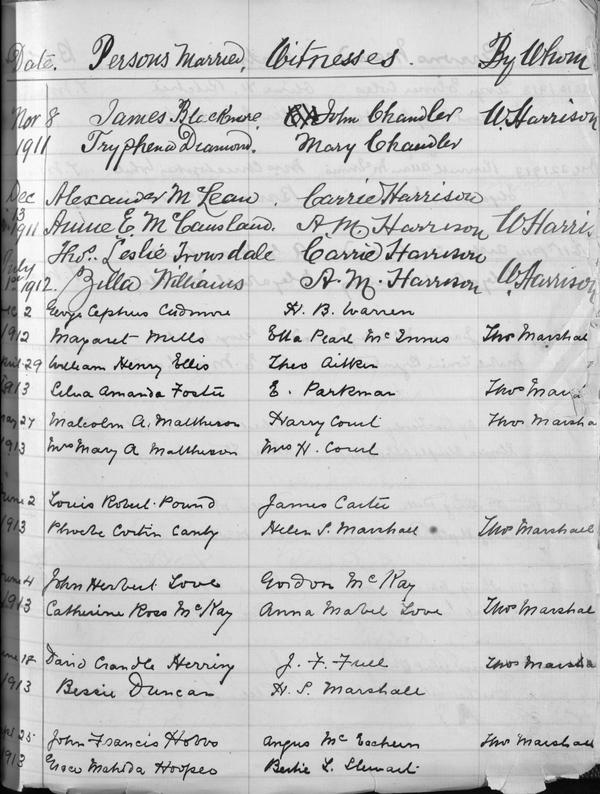 Date. Persons Married, Witnesses. By Whom
Nov 8 James Blackmore. John Chandler W. Harrison
1911 Tryphena Diamond. Mary Chandler
Dec Alexander McLean. Carrie Harrison
13
1911 Annie E. McCausland. A M Harrison W Harris
Thos. Leslie Trowsdale Carrie Harrison
July
1st 1912. Zilla Williams A. M. Harrison W. Harrison
2 George Cephus Cudmore H. B. Warren
1912 Margaret Mills Etta Pearl McInnis Thos Marshall
29 William Henry Ellis Theo Aitken
1913 Amanda Foster E. Parkman Thos Mars
May 27 Malcolm A. Matheson Harry Court Thos Marsha
1913 Mrs Mary A Matheson Mrs H. Court
June 2 Louis Robert Pound James Carter
1913 Phoebe Canby Helen S. Marshall Thos Marshall
June 4 John Herbert Love Gordon McKay
1913 Catherine Ross McKay Anna Mabel Love Thos Marshal
David Crandle Herring J. F. Thos Marsha
1913 Bessie Duncan H. S. Marshall
25 John Francis Hobbs Angus McEachern Thos Marshall
1913 Grace Matilda Bertie L. Stewart